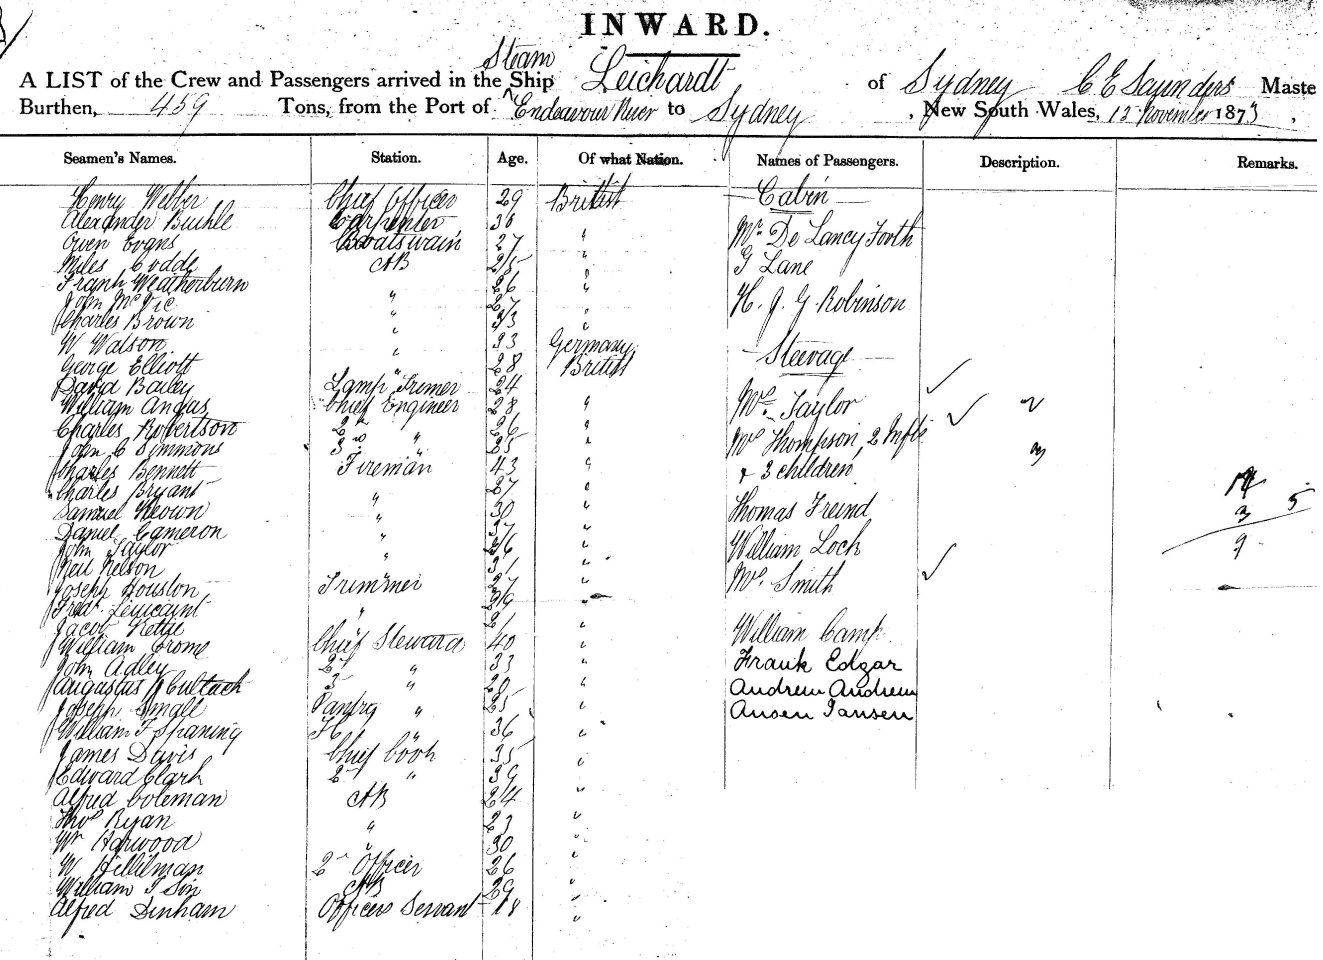 INWARD.
Steam
A LIST of the Crew and Passengers arrived in the Ship Leichardt of Sydney C E Saunders Maste
Burthen, 459 Tons, from the Port of Endeavour River to Sydney, New South Wales, 12 November 1873,
Seamen's Names. Station. Age. Of what Nation. Names of Passengers. Description. Remarks.
Henry Webber Chief Officer 29 British Cabin
Alexander Buchle Carpenter 38
Owen Evans Boatswain 27 " Mr. De Lancy Forth
Miles Codde AB 25 " G Lane
Frank Weatherburn 26 "
John Mc Vic " 27 " H. J. G. Robinson
Charles Brown " 33 "
W Watson " 33 Germany Steerage
George Elliott " 28 British
David Bailey Lamp Trimer 24
William Angas Chief Engineer 28 " Mrs. Taylor
Charles Robertson 2nd " 26 "
John C Simmons 3rd " 25 " Mrs Thompson, 2 Infts
Charles Bennett Fireman 43 " + 3 children
Charles Bryant " 27 "
Samuel Keown " 30 " Thomas Freind 3 5
Daniel Cameron " 37 "
John Taylor " 26 " William Lock 9
Neil Nelson 31 "
Joseph Houston Trimmer 27 " Mrs. Smith
Fredk 29 "
Jacob Kettie " 21 "
William Crome Chief Steward 40 " William Camp
John Adley 2 " 33 " Frank Edgar
Augastus 3 " 20 " Andrew Andrew
Joseph Small Pantry " 25 " Ansen Jansen
William F Spaning 36 "
James Davis Chief Cook 35 "
Edward Clark 2 " 39 "
Alfred Coleman AB 24 "
Thos Ryan " 23 "
Wm Harwood " 30 "
W Hillilman 2nd Officer 26 "
William J Sin AB 29 "
Alfred Dinham Officers Servant 18 "